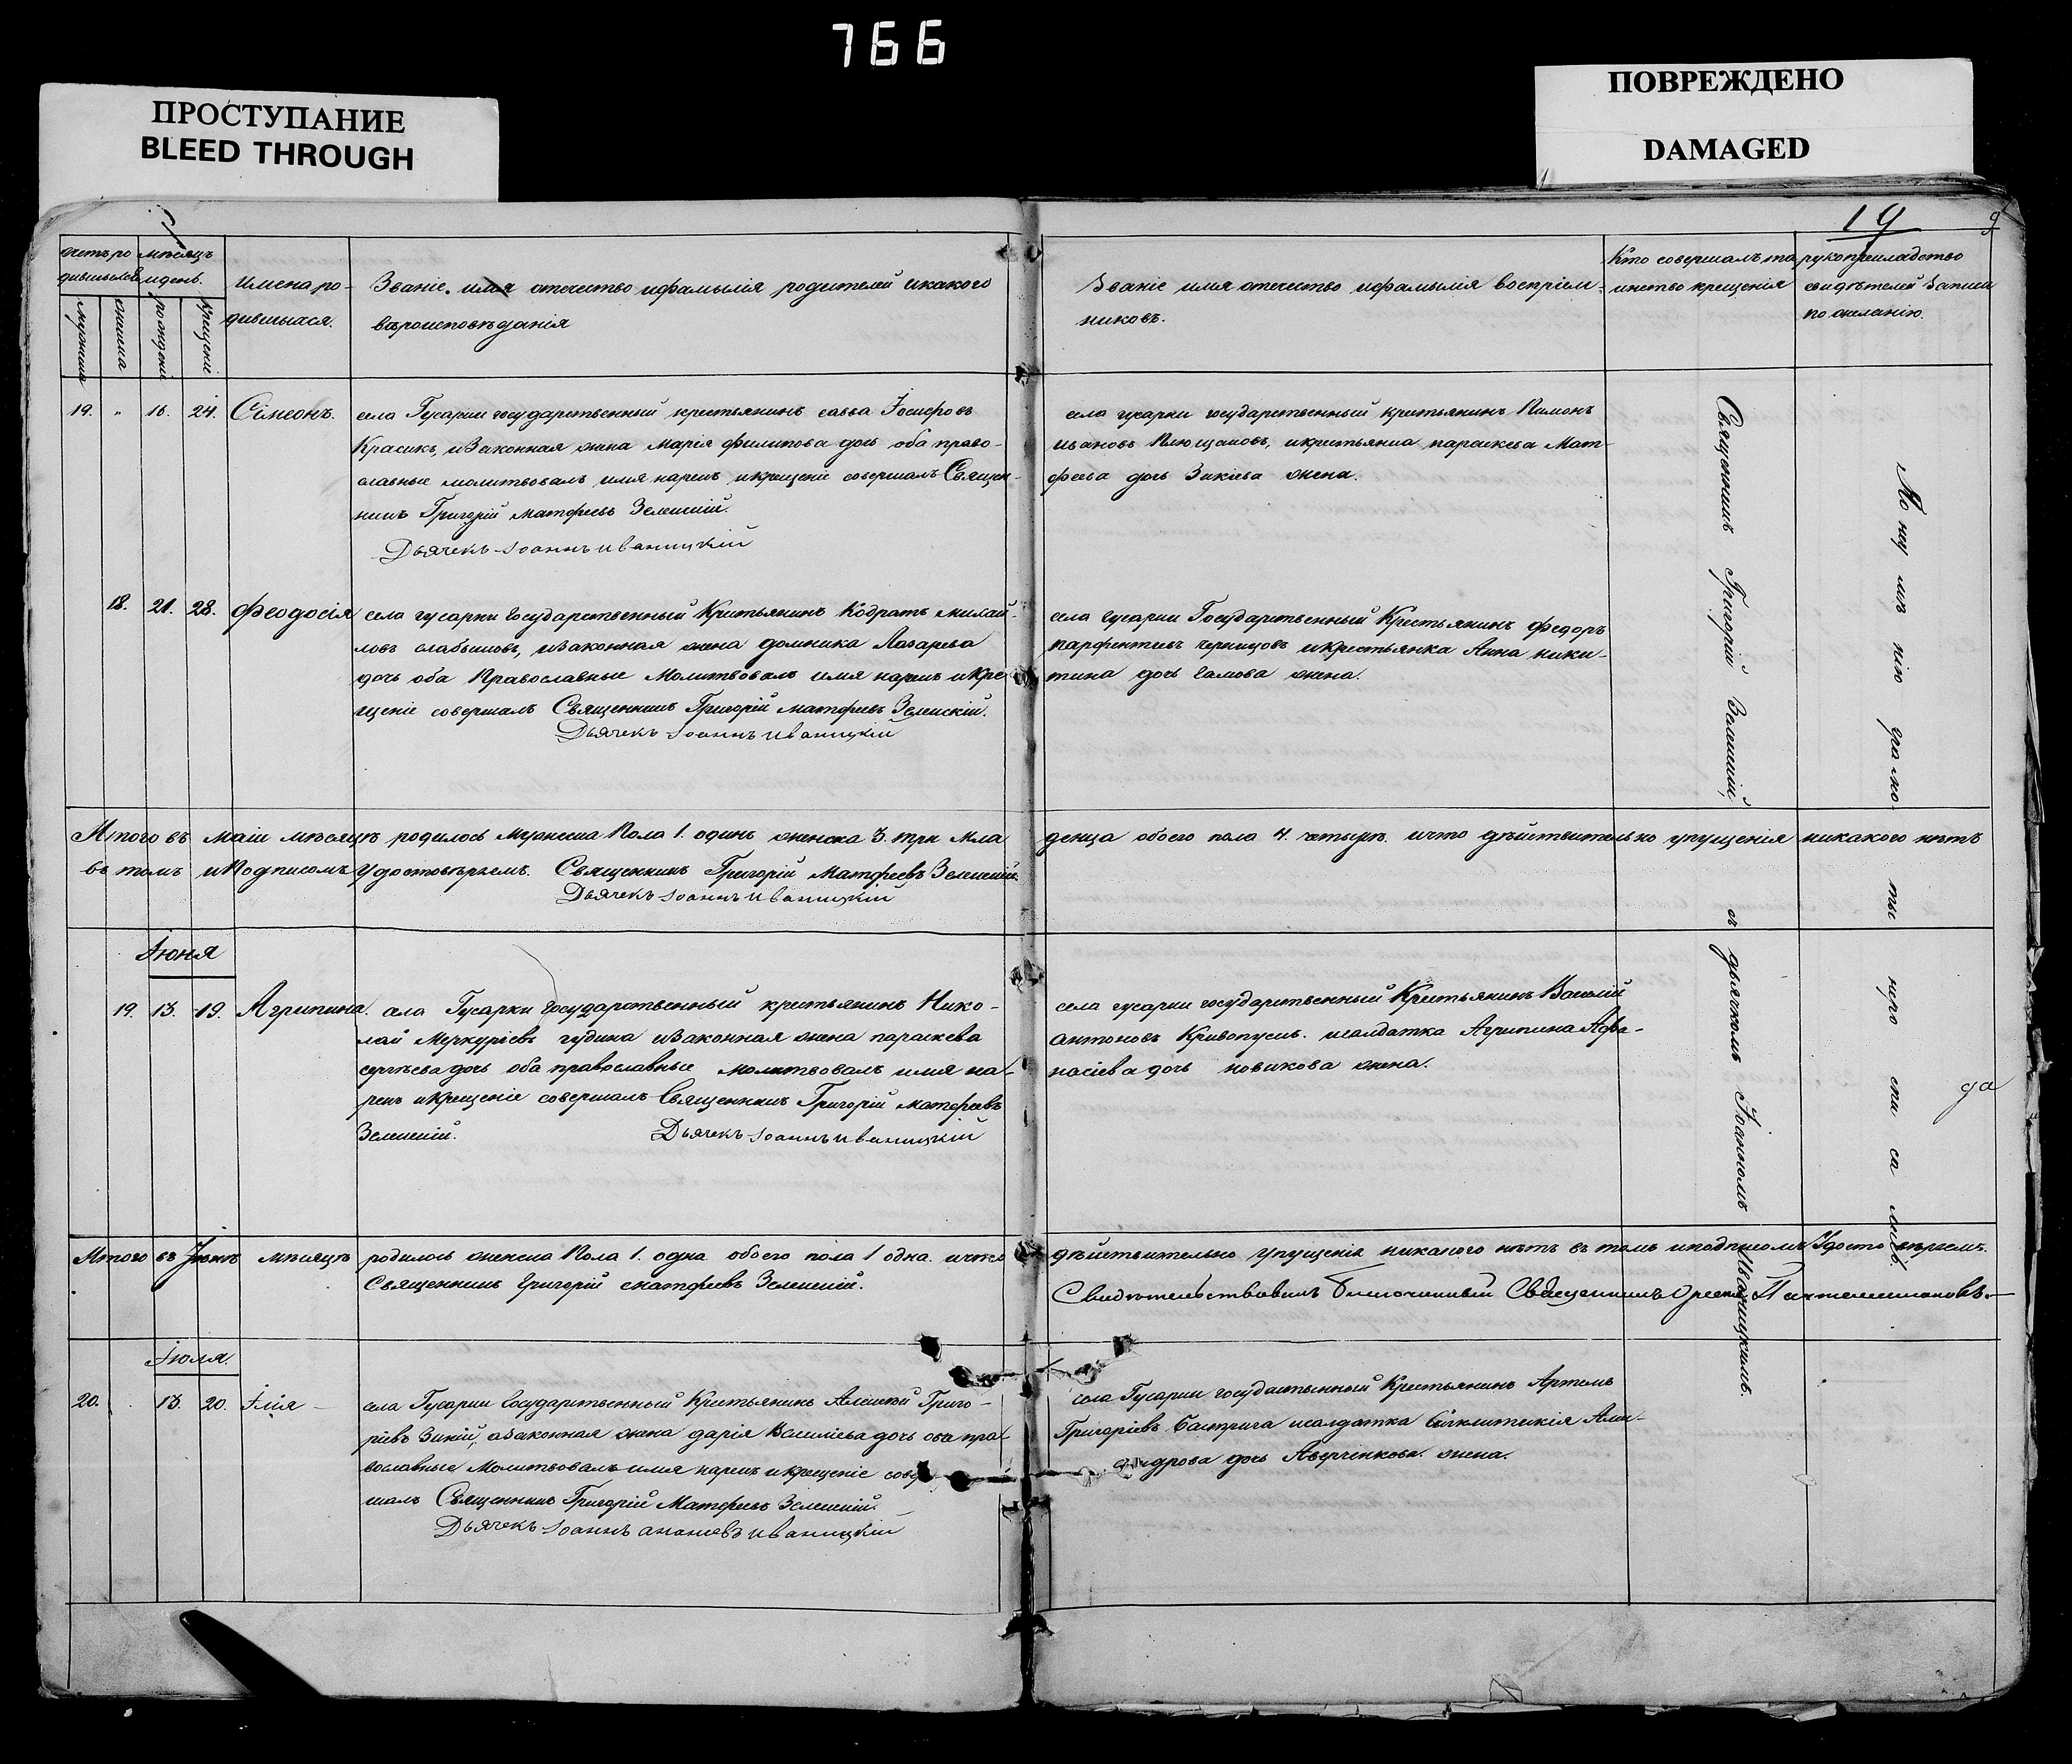 766
ПРОСТУПАНИЕ
BLEED THROUGH
ПОВРЕЖДЕНО
DAMAGED
19
9
счетъ ро
дившыхся
мѣсяцъ
и день.
мужеска
женска
рожденіе
крещеніе
имена ро-
дившыхся.
Званіе. имя отечество ифамылія родителей икакого
вѣроисповѣданія
Званіе имя отечество ифамылія воспріем-
никовъ.
Кто совершалъ та
инство крещенія
рукоприкладство
свидѣтелей записи
по желанію.
19. „ 16. 24. Сімеонъ.
села Гусарки государственный крестьянинъ савва Іосифовъ
Красикъ, изаконная жена марія филипова дочь оба право-
славные молитвовалъ имя нарекъ икрещеніе совершалъ Священ-
никъ Григорій матфеевъ Зеленскій.
Дьячекъ Іоаннъ иваницкій
села гусарки государственный крестьянинъ Пимонъ
ивановъ, икрестьянка параскева Мат-
феева дочь Зикіева жена.
18. 21. 28. Феодосія
села гусарки государственный Крестьянинъ Кодратъ михай-
ловъ изаконная жена домника Лазарева
дочь оба Православные Молитвовалъ имя нарекъ икре
щеніе совершалъ Священникъ Григорій матфеевъ Зеленскій.
Дьячекъ Іоаннъ иваницкій
села гусарки Государственный Крестьянинъ федоръ
парфентиевъ чернцовъ икрестьянка Анна ники-
тина дочь жена.
Итого въ маіи мѣсяцѣ родилось Мужеска Пола 1. одинъ женска 3. три мла
денца обоего пола 4. четыре. ичто дѣйствительно упущенія никакого нѣтъ
въ томъ иПодписомъ удостовѣряемъ. Священникъ Григорій Матфеевъ Зеленскій.
Дьячекъ Іоаннъ иваницкій
Іюня
19. 13. 19. Агрипина.
села Гусарки государственный крестьянинъ Нико-
лай Меркуріевъ гудина изаконная жена параскева
сергѣева дочь оба православные молитвовалъ имя на-
рекъ икрещеніе совершалъ Священникъ Григорій матфеевъ
Зеленскій. Дьячекъ Іоаннъ иваницкій
села гусарки государственный Крестьянинъ Василій
антоновъ Кривопускъ. исалдатка Агрипина Афа-
насіева дочь новикова жена.
да
Итого въ Іюнѣ мѣсяцѣ родилось женска Пола 1. одна обоего пола 1 одна. ичто
дѣйствительно упущенія никакого нѣтъ въ томъ иподписомъ Удостовѣряемъ.
Священникъ Григорій матфеевъ Зеленскій.
Свидѣтельствовалъ Благочинный Священникъ Пантелеимоновъ.
Іюля.
20. 13. 20. Ілія
села Гусарки Государственный Крестьянинъ Алексей Григо-
ріевъ Зикій, изаконная жена дарія Василіева дочь оба пра-
вославные Молитвовалъ имя нарекъ икрещеніе совер
шалъ Священникъ Григорій Матфеевъ Зеленскій.
Дьячекъ Іоаннъ ананіевъ иваницкій
села Гусарки государственный Крестьянинъ Артемъ
Григоріевъ исалдатка Алек-
андрова дочь Аверченкова. жена.
Священникъ Григорій Зеленскій, съ дьячкомъ Іоанномъ Иваницкимъ.
По неу мѣ нію гра мо ты неро спи са лись.